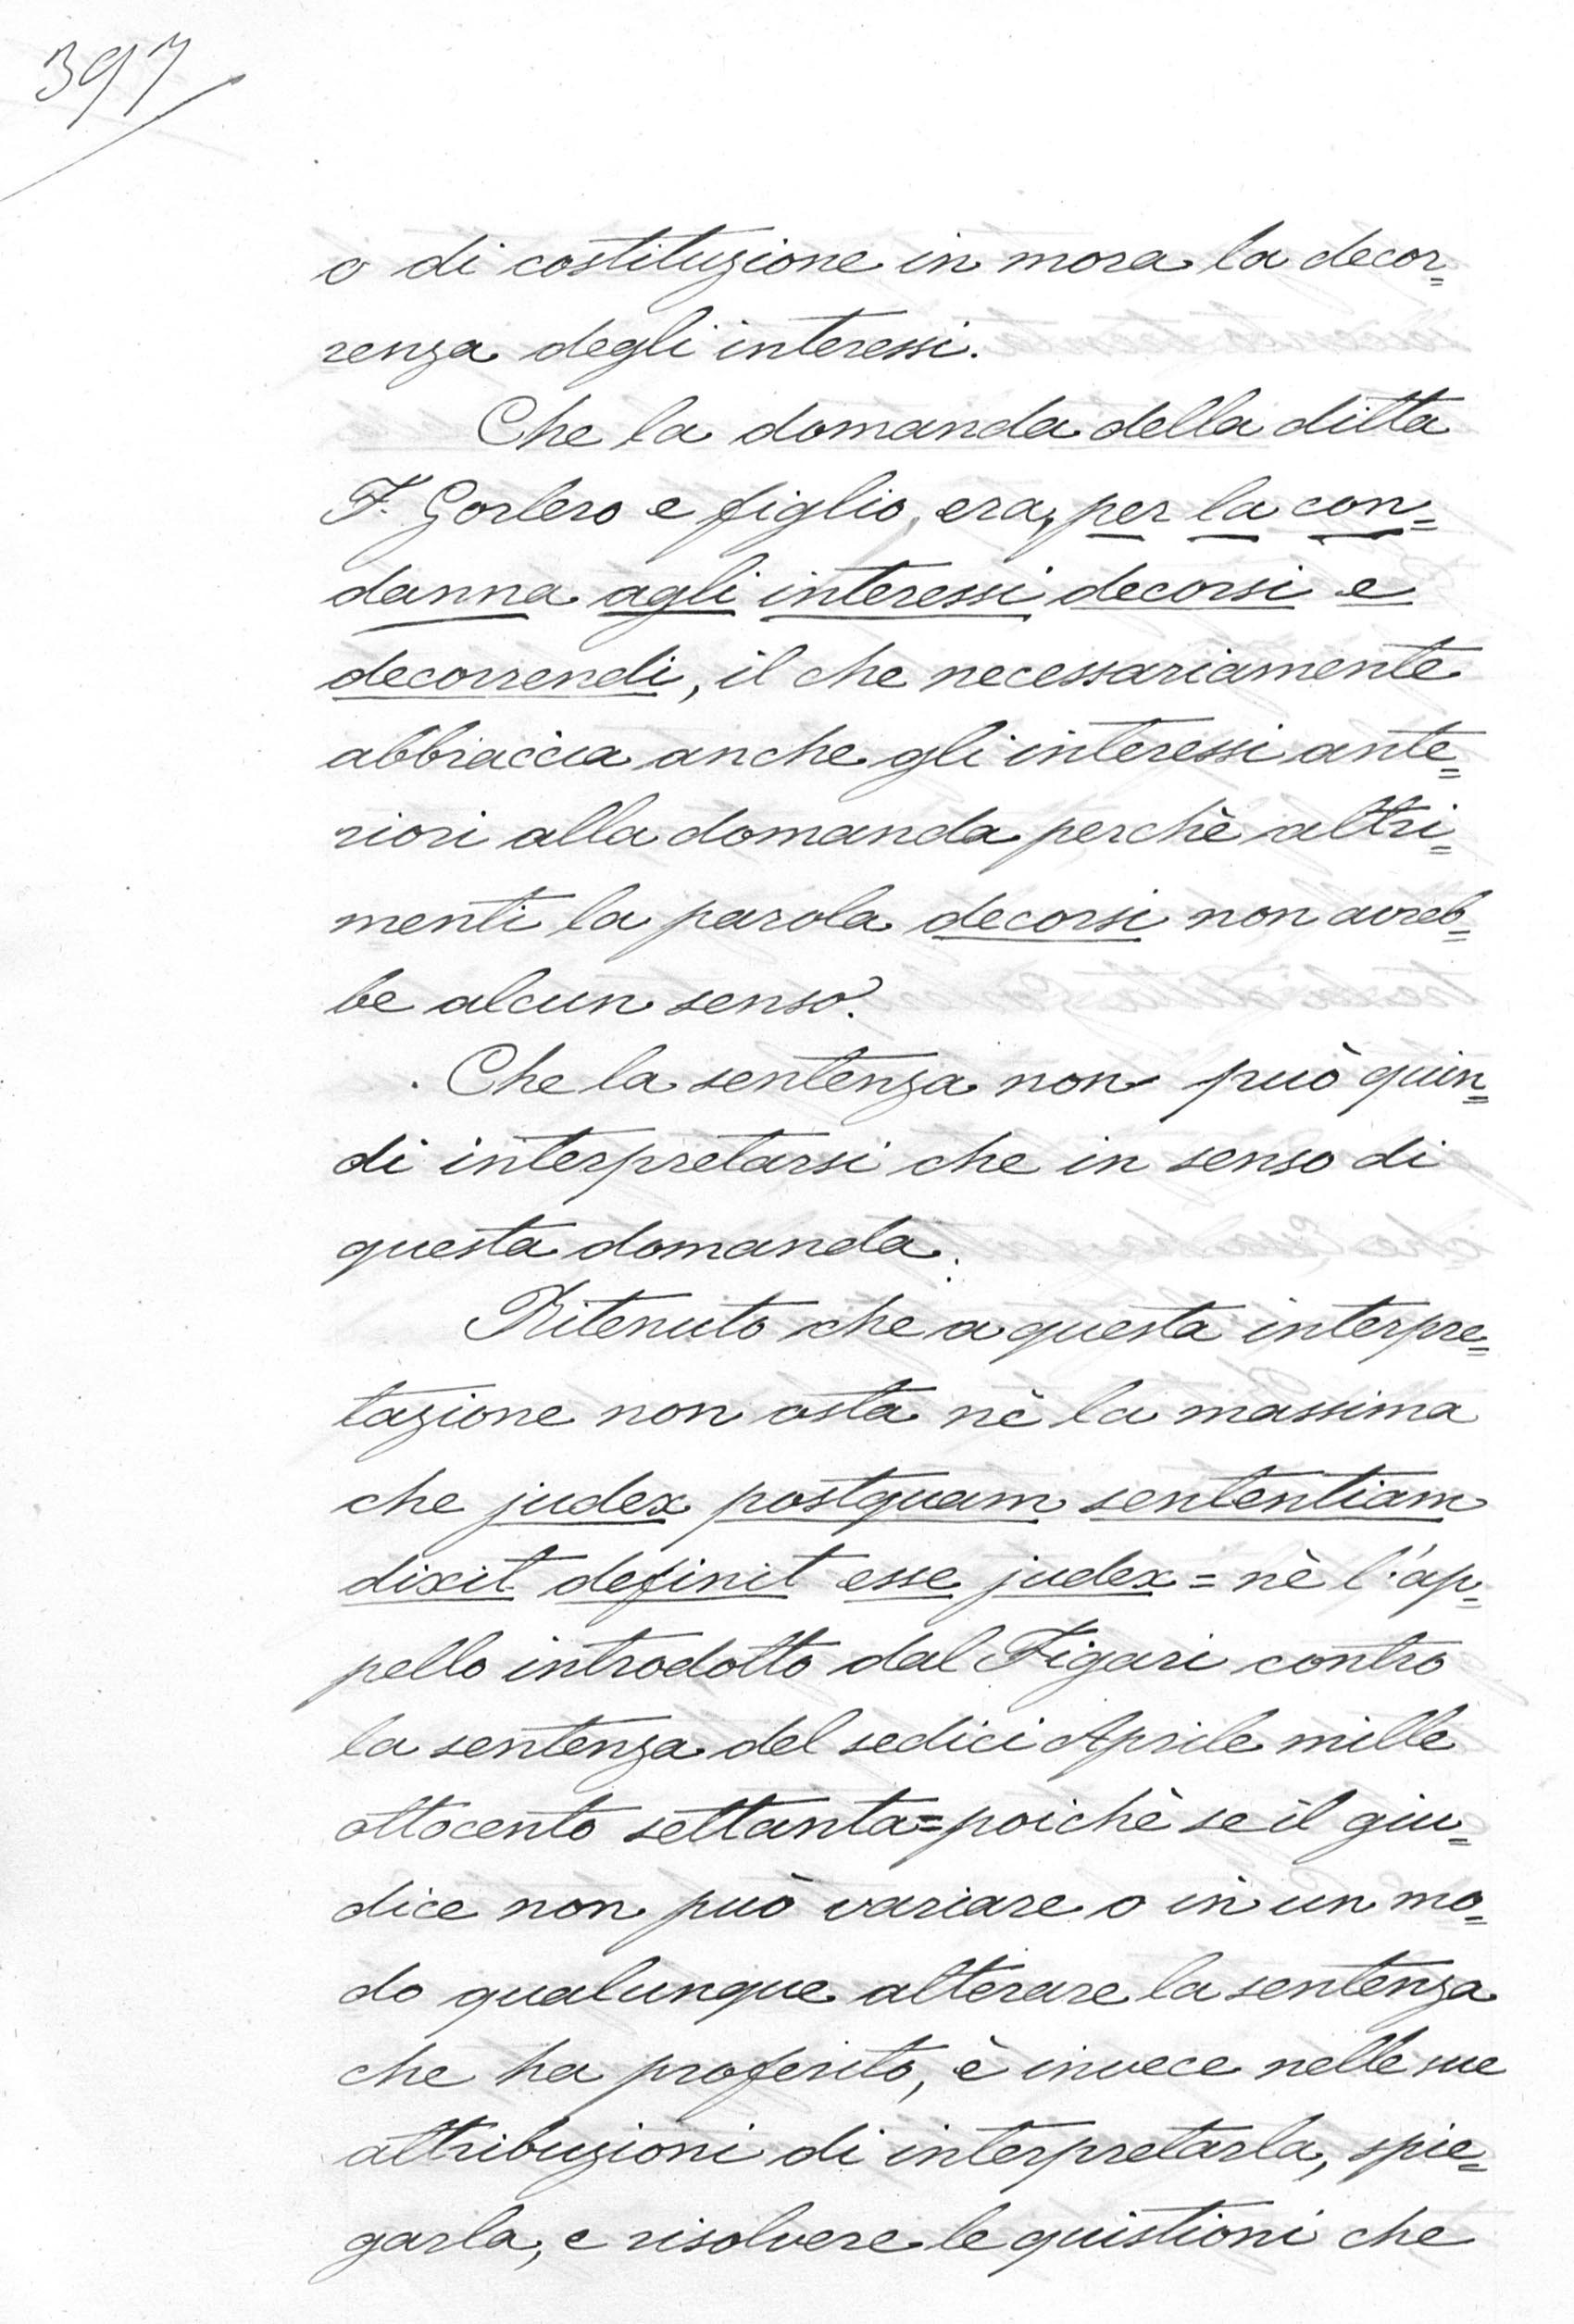 397
o di costituzione in mora la decor=
renza degli interessi.
Che la domanda della ditta
F. Gorlero e figlio, era, per la con=
danna agli interessi decorsi e
decorrendi, il che necessariamente
abbraccia anche gli interessi ante=
riori alla domanda perchè altri=
menti la parola decorsi non avreb=
be alcun senso.
Che la sentenza non può quin=
di interpretarsi che in senso di
questa domanda.
Ritenuto che a questa interpre=
tazione non osta nè la massima
che judex postquam sententiam
dixit definit esse judex = nè l'ap=
pello introdotto dal Figari contro
la sentenza del sedici Aprile mille
ottocento settanta = poichè se il giu=
dice non può variare o in un mo=
do qualunque alterare la sentenza
che ha proferito, è invece nelle sue
attribuzioni di interpretarla, spie=
garla, e risolvere le quistioni che